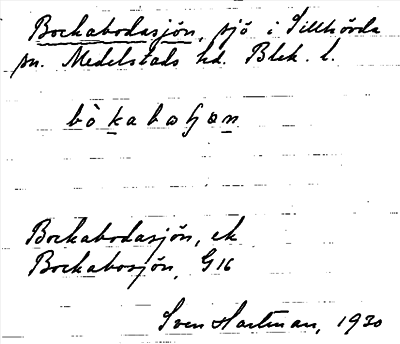 Bockabodasjön, sjö i Tillhövda
sn. Medelstads hd. Blek. l.
bò kabaɧøn
Bockabodasjön, ek
Bockabosjön, G16
Sven Hartman, 1930